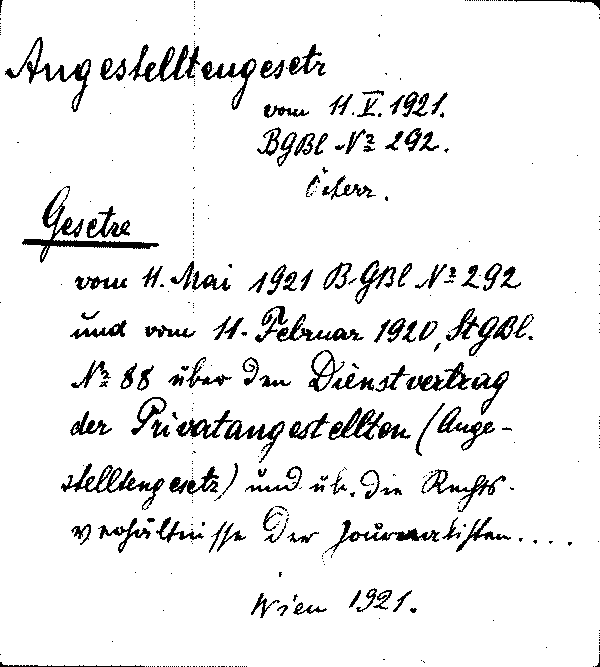 Angestelltengesetz
vom 11.V.1921.
BGBl № 292.
Österr.
Gesetze
vom 11. Mai 1921 BGBl № 292
und vom 11. Februar 1920, StGBl.
№ 88 über den Dienstvertrag
der Privatangestellten (Ange-
stelltengesetz) und üb. die Rechts-
verhältnisse der Journalisten....
Wien 1921.